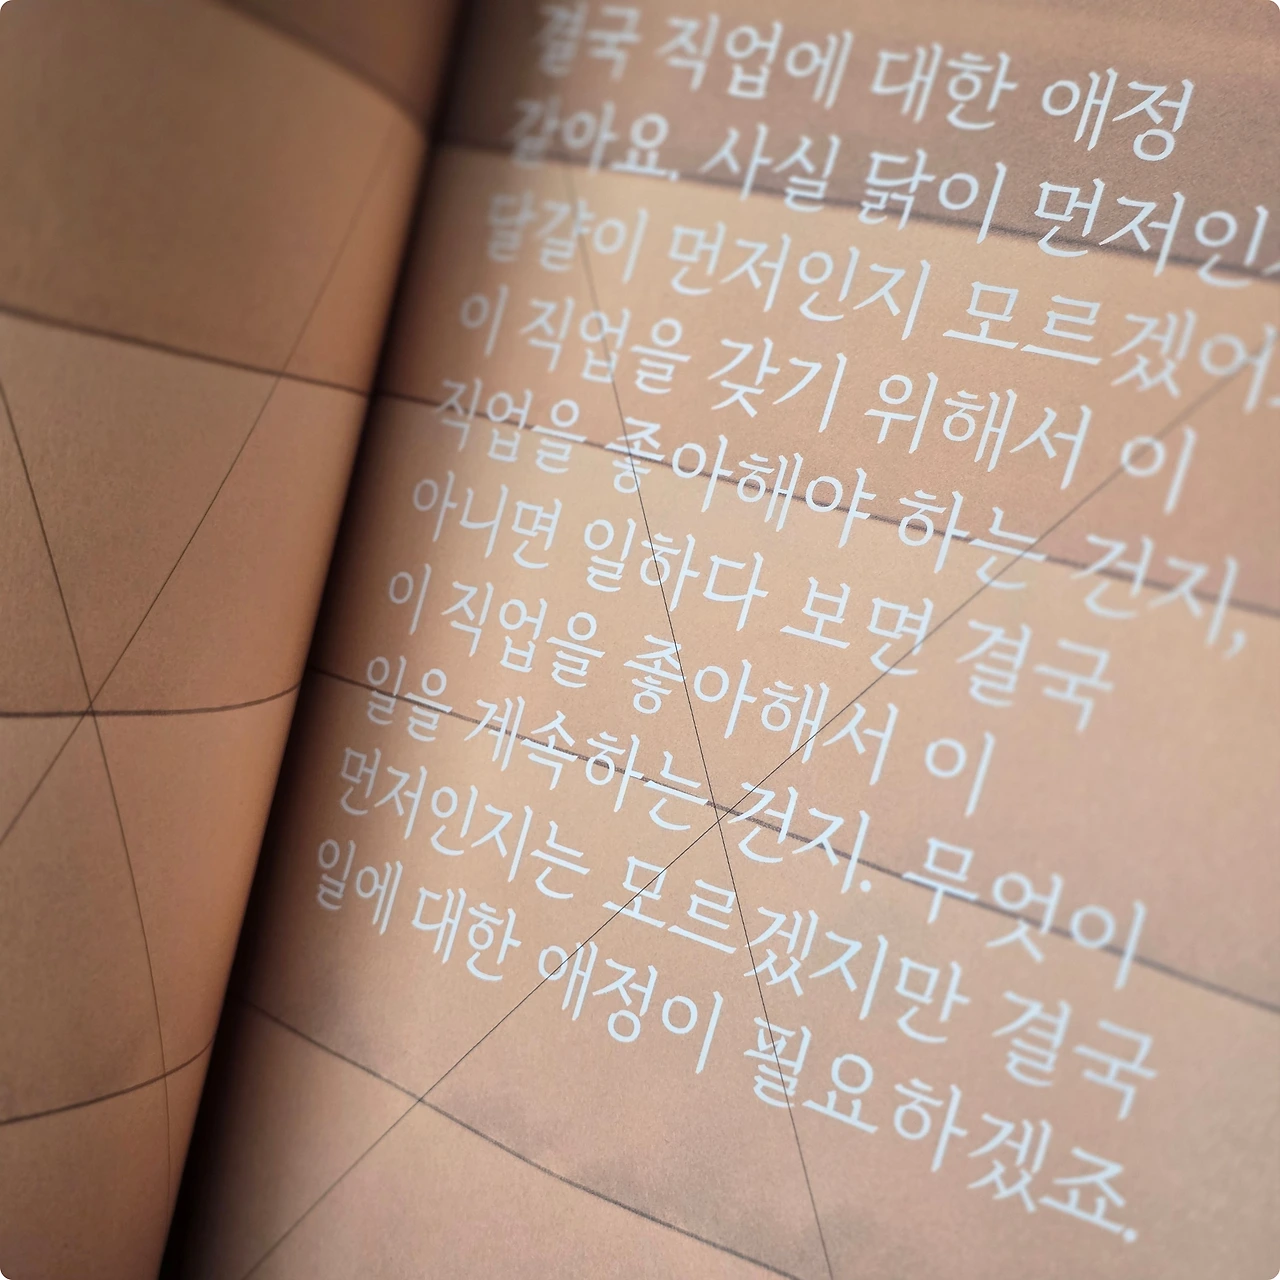 결국 직업에 대한 애정
같아요. 사실 닭이 먼저인지
달걀이 먼저인지 모르겠어
이 직업을 갖기 위해서 이
직업을 좋아해야 하는 건지,
아니면 일하다 보면 결국
이 직업을 좋아해서 이
일을 계속하는 건지. 무엇이
먼저인지는 모르겠지만 결국
일에 대한 애정이 필요하겠죠.